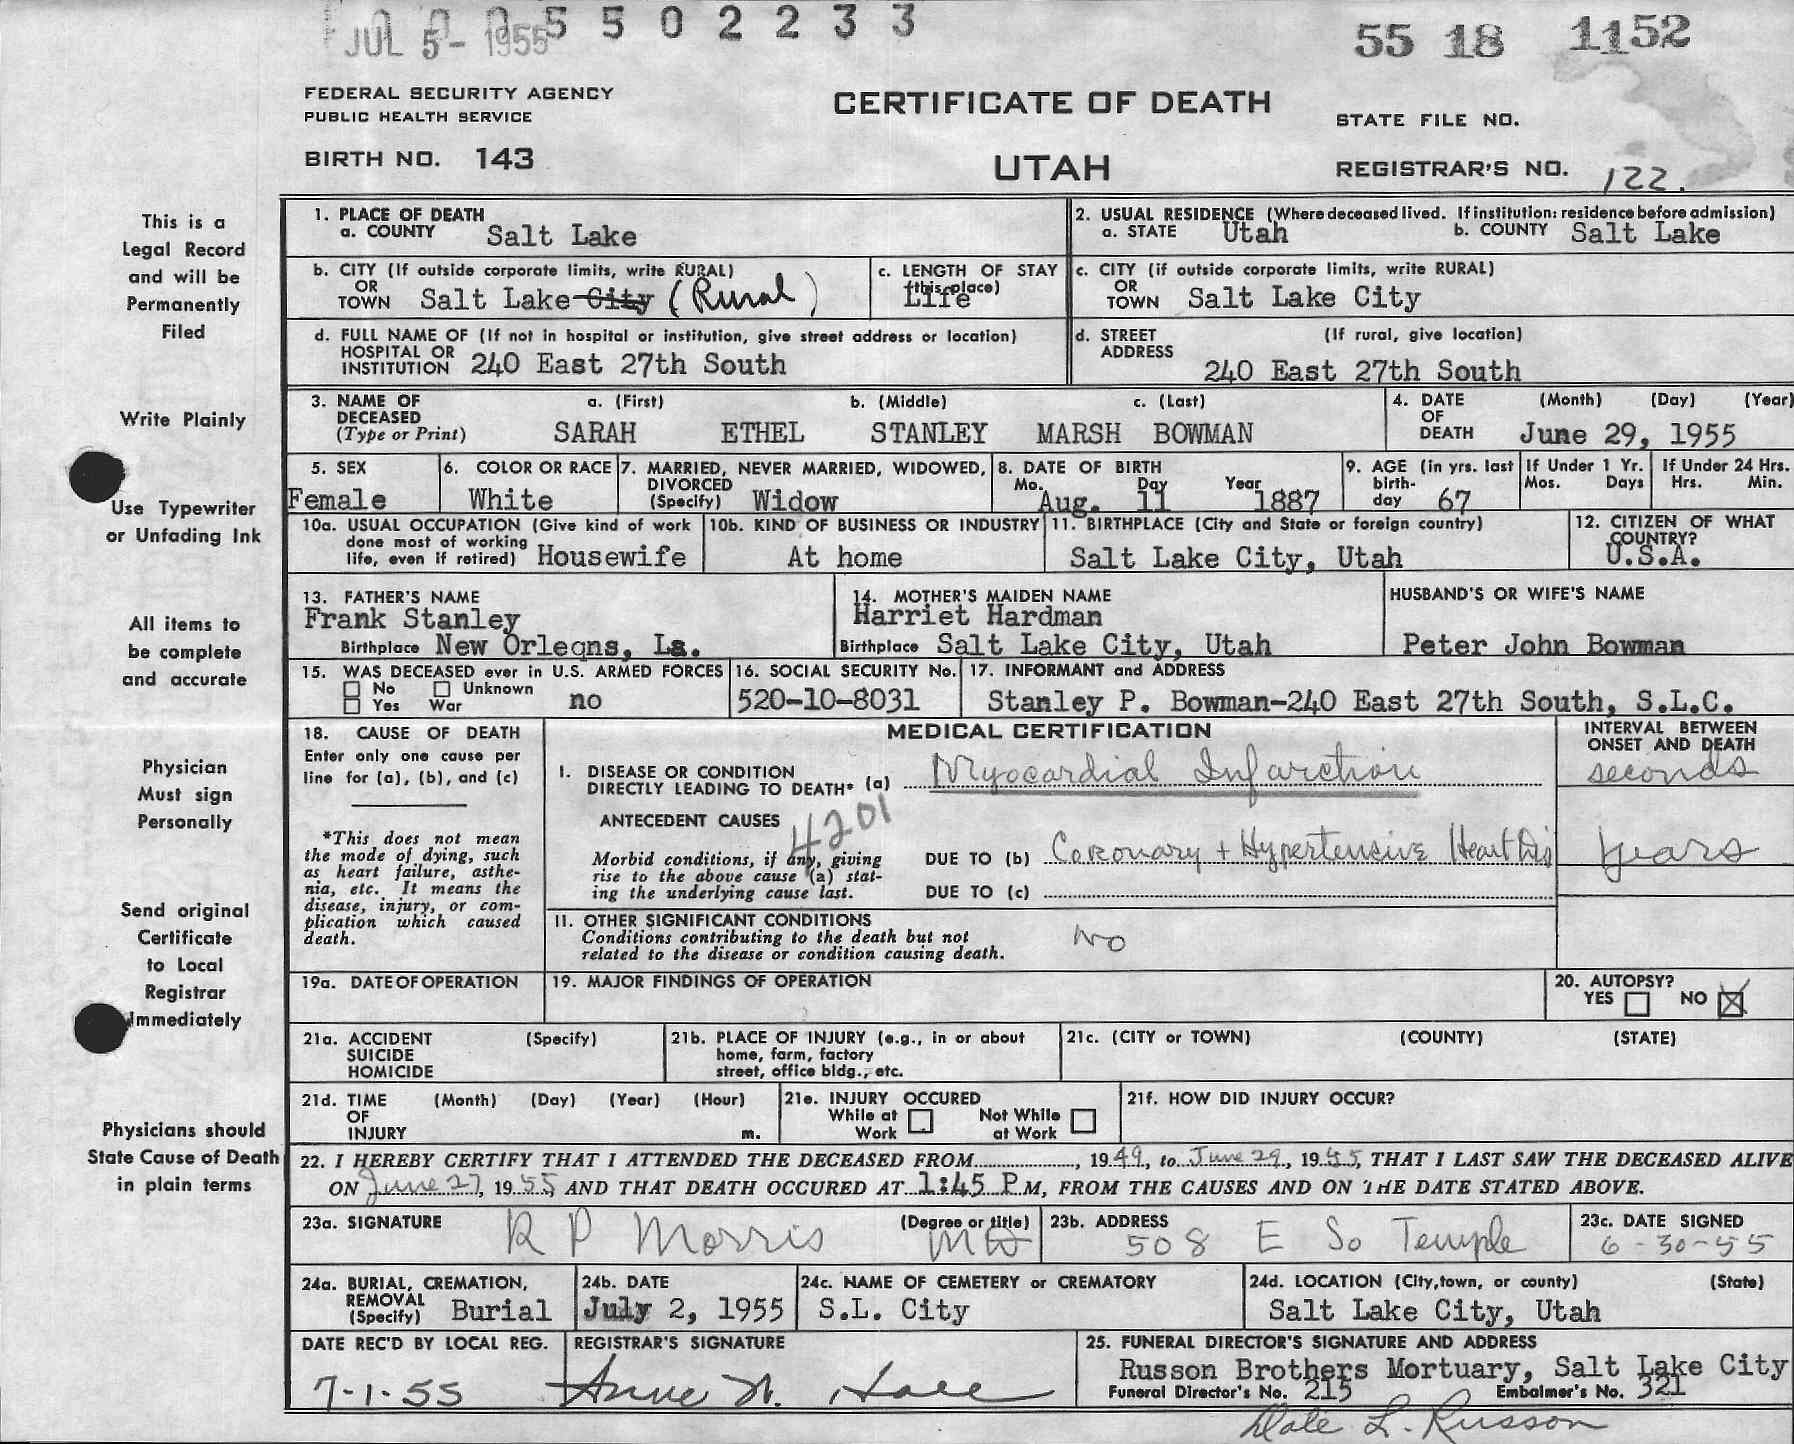 JUL 5 - 1955 5 5 0 2 2 3 3
55 18 1152
FEDERAL SECURITY AGENCY
PUBLIC HEALTH SERVICE
BIRTH NO. 143
CERTIFICATE OF DEATH
UTAH
STATE FILE NO.
REGISTRAR'S NO. 122.
This is a
Legal Record
and will be
Permanently
Filed
Write Plainly
Use Typewriter
or Unfading Ink
All items to
be complete
and accurate
Physician
Must sign
Personally
Send original
Certificate
to Local
Registrar
Immediately
Physicians should
State Cause of Death
in plain terms
1. PLACE OF DEATH
a. COUNTY Salt Lake
2. USUAL RESIDENCE (Where deceased lived. If institution: residence before admission)
a. STATE Utah b. COUNTY Salt Lake
b. CITY (If outside corporate limits, write RURAL)
OR
TOWN Salt Lake City (Rural)
c. LENGTH OF STAY
(this place)
Life
c. CITY (if outside corporate limits, write RURAL)
OR
TOWN Salt Lake City
d. FULL NAME OF (If not in hospital or institution, give street address or location)
HOSPITAL OR
INSTITUTION 240 East 27th South
d. STREET (If rural, give location)
ADDRESS
240 East 27th South
3. NAME OF a. (First) b. (Middle) c. (Last)
DECEASED
(Type or Print) SARAH ETHEL STANLEY MARSH BOWMAN
4. DATE (Month) (Day) (Year)
OF
DEATH June 29, 1955
5. SEX
Female
6. COLOR OR RACE
White
7. MARRIED, NEVER MARRIED, WIDOWED,
DIVORCED
(Specify) Widow
8. DATE OF BIRTH
Mo. Day Year
Aug. 11 1887
9. AGE (in yrs. last
birth-
day 67
If Under 1 Yr.
Mos. Days
If Under 24 Hrs.
Hrs. Min.
10a. USUAL OCCUPATION (Give kind of work
done most of working
life, even if retired) Housewife
10b. KIND OF BUSINESS OR INDUSTRY
At home
11. BIRTHPLACE (City and State or foreign country)
Salt Lake City, Utah
12. CITIZEN OF WHAT
COUNTRY?
U.S.A.
13. FATHER'S NAME
Frank Stanley
Birthplace New Orleqns, La.
14. MOTHER'S MAIDEN NAME
Harriet Hardman
Birthplace Salt Lake City, Utah
HUSBAND'S OR WIFE'S NAME
Peter John Bowman
15. WAS DECEASED ever in U.S. ARMED FORCES
No Unknown
Yes War no
16. SOCIAL SECURITY No.
520-10-8031
17. INFORMANT and ADDRESS
Stanley P. Bowman-240 East 27th South, S.L.C.
18. CAUSE OF DEATH
Enter only one cause per
line for (a), (b), and (c)
*This does not mean
the mode of dying, such
as heart failure, asthe-
nia, etc. It means the
disease, injury, or com-
plication which caused
death.
MEDICAL CERTIFICATION
INTERVAL BETWEEN
ONSET AND DEATH
I. DISEASE OR CONDITION
DIRECTLY LEADING TO DEATH* (a) Myocardial Infarction
seconds
ANTECEDENT CAUSES
4201
Morbid conditions, if any, giving
rise to the above cause (a) stat-
ing the underlying cause last.
DUE TO (b) Coronary + Hypertensive Heart Dis
years
DUE TO (c)
II. OTHER SIGNIFICANT CONDITIONS
Conditions contributing to the death but not
related to the disease or condition causing death.
No
19a. DATE OF OPERATION
19. MAJOR FINDINGS OF OPERATION
20. AUTOPSY?
YES NO X
21a. ACCIDENT (Specify)
SUICIDE
HOMICIDE
21b. PLACE OF INJURY (e.g., in or about
home, farm, factory
street, office bldg., etc.
21c. (CITY or TOWN) (COUNTY) (STATE)
21d. TIME (Month) (Day) (Year) (Hour)
OF
INJURY m.
21e. INJURY OCCURED
While at Not While
Work at Work
21f. HOW DID INJURY OCCUR?
22. I HEREBY CERTIFY THAT I ATTENDED THE DECEASED FROM, 1949, to June 29, 1955, THAT I LAST SAW THE DECEASED ALIVE
ON June 27, 1955, AND THAT DEATH OCCURED AT 1:45 P.M, FROM THE CAUSES AND ON THE DATE STATED ABOVE.
23a. SIGNATURE (Degree or title)
R P Morris MD
23b. ADDRESS
508 E So Temple
23c. DATE SIGNED
6-30-55
24a. BURIAL, CREMATION,
REMOVAL
(Specify) Burial
24b. DATE
July 2, 1955
24c. NAME OF CEMETERY or CREMATORY
S.L. City
24d. LOCATION (City, town, or county) (State)
Salt Lake City, Utah
DATE REC'D BY LOCAL REG.
7-1-55
REGISTRAR'S SIGNATURE
Anne W. Hall
25. FUNERAL DIRECTOR'S SIGNATURE AND ADDRESS
Russon Brothers Mortuary, Salt Lake City
Funeral Director's No. 215 Embalmer's No. 321
Dale L. Russon